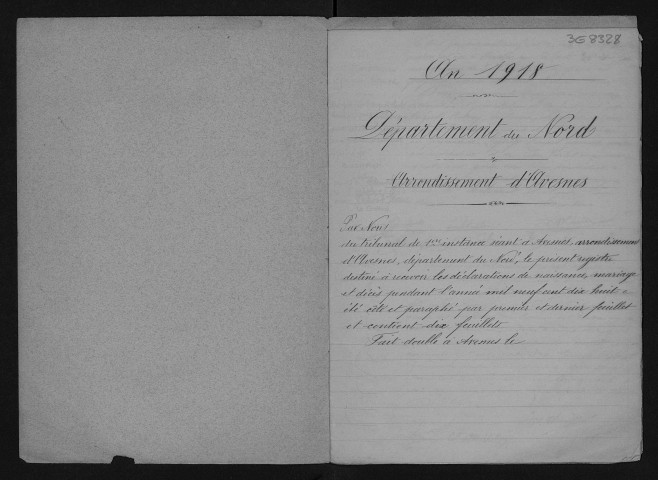 3E8328
An 1918
Département du Nord
Arrondissement d'Avesnes
Par Nous
du tribunal de 1ère instance séant à Avesnes, arrondissement
d'Avesnes, département du Nord, le présent registre
destiné à recevoir les déclarations de naissance, mariage
et décès pendant l'année mil neuf cent dix huit a
été coté et paraphé par premier et dernier feuillet
et contient dix feuillets
Fait double à Avesnes le